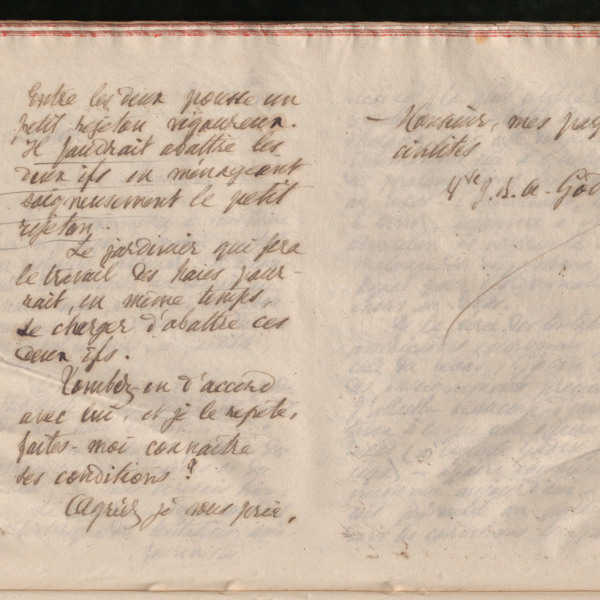 Entre les deux pousse un
petit rejeton vigoureux.
Il faudrait abattre les
deux ifs en ménageant
soigneusement le petit
rejeton.
Le jardinier qui fera
le travail des haies pour-
rait, en même temps,
se charger d'abattre ces
deux ifs.
Tombez-en d'accord
avec lui, et je le répète,
faites-moi connaître
ses conditions ?
Agréez je vous prie,
- Monsieur, mes
cialités
Vve J. B. A. God